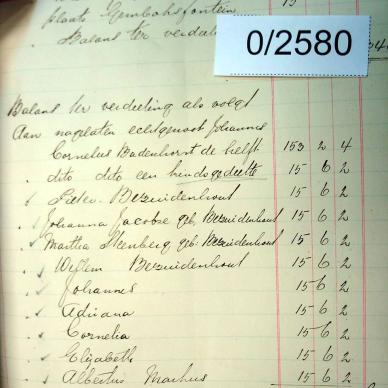 plaats Gemboksfontein 15
Balans ter verdeel
0/2580
Balans ter verdeeling als volgt
Aan nagelaten echtgenoot Johannes
Cornelius Badenhorst de helft 153 2 4
dito dito een kindsgedeelte 15 6 2
Pieter Bezuidenhout 15 6 2
Johanna Jacoba geb. Bezuidenhout 15 6 2
Martha Steenberg geb. Bezuidenhout 15 6 2
Willem Bezuidenhout 15 6 2
Johannes 15 6 2
Adriana 15 6 2
Cornelia 15 6 2
Elizabeth 15 6 2
Albertus Marthus 15 6 2